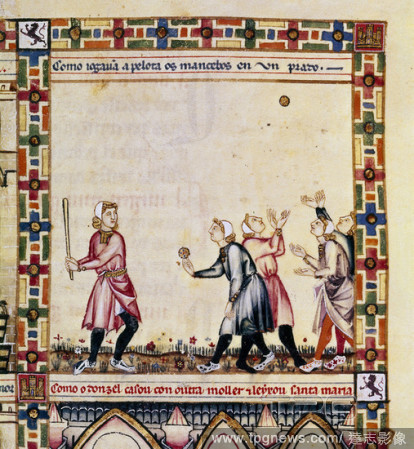 Como iogauã a pelota os mancebos en vn prado.
Como o donzel casou con outra moller ⁊ leyxou santa maria
www.tpgnews.com/達志影像